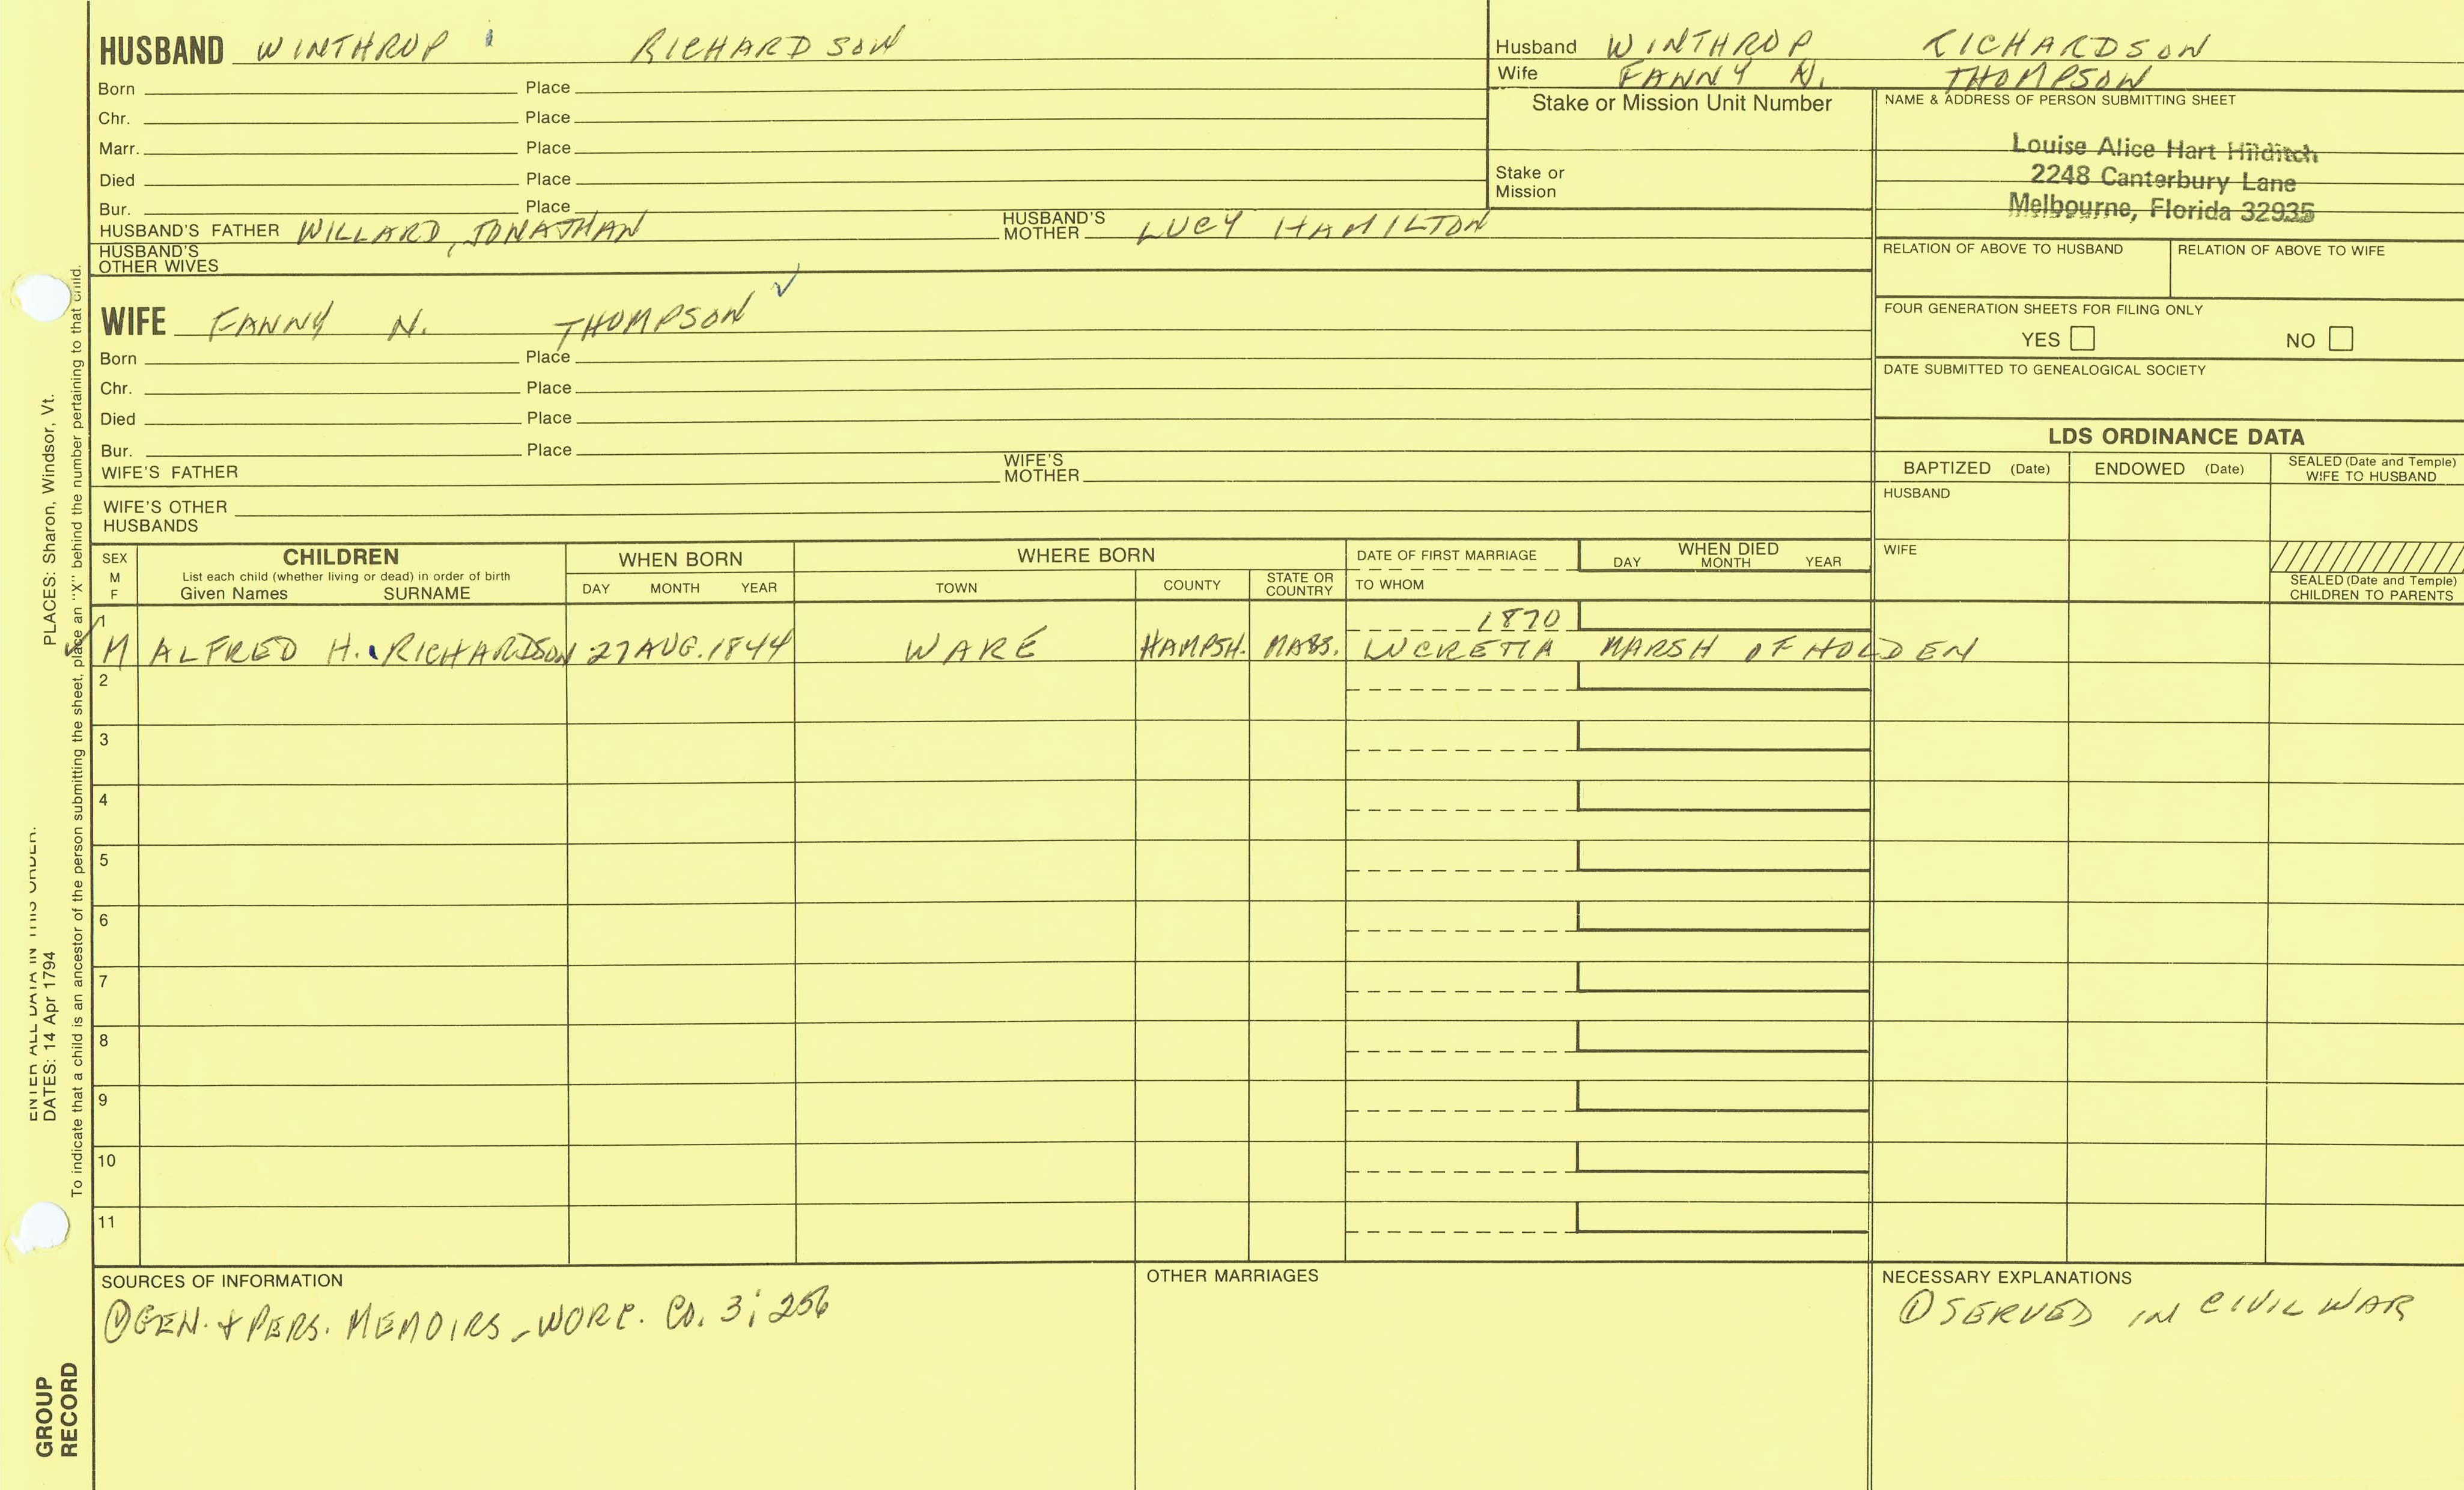 HUSBAND WINTHROP RICHARDSON
Born Place
Chr. Place
Marr. Place
Died Place
Bur. Place
HUSBAND'S FATHER WILLARD, JONATHAN HUSBAND'S MOTHER LUCY HAMILTON
HUSBAND'S OTHER WIVES
Husband WINTHROP RICHARDSON
Wife FANNY N. THOMPSON
Stake or Mission Unit Number
Stake or Mission
NAME & ADDRESS OF PERSON SUBMITTING SHEET
Louise Alice Hart Hilditch
2248 Canterbury Lane
Melbourne, Florida 32935
RELATION OF ABOVE TO HUSBAND RELATION OF ABOVE TO WIFE
FOUR GENERATION SHEETS FOR FILING ONLY
YES NO
DATE SUBMITTED TO GENEALOGICAL SOCIETY
WIFE FANNY N. THOMPSON
Born Place
Chr. Place
Died Place
Bur. Place
WIFE'S FATHER WIFE'S MOTHER
WIFE'S OTHER HUSBANDS
LDS ORDINANCE DATA
BAPTIZED (Date) ENDOWED (Date) SEALED (Date and Temple) WIFE TO HUSBAND
HUSBAND
WIFE
SEALED (Date and Temple) CHILDREN TO PARENTS
SEX M F
CHILDREN
List each child (whether living or dead) in order of birth
Given Names SURNAME
WHEN BORN
DAY MONTH YEAR
WHERE BORN
TOWN COUNTY STATE OR COUNTRY
DATE OF FIRST MARRIAGE
TO WHOM
WHEN DIED
DAY MONTH YEAR
1 1870
M ALFRED H. RICHARDSON 27 AUG. 1844 WARE HAMPSH. MASS. LUCRETIA MARSH OF HOLDEN
2
3
4
5
6
7
8
9
10
11
SOURCES OF INFORMATION
① GEN. + PERS. MEMOIRS - WORC. CO. 3; 256
OTHER MARRIAGES
NECESSARY EXPLANATIONS
① SERVED IN CIVIL WAR
ENTER ALL DATA IN THIS ORDER:
DATES: 14 Apr 1794 PLACES: Sharon, Windsor, Vt.
To indicate that a child is an ancestor of the person submitting the sheet, place an "X" behind the number pertaining to that child.
GROUP
RECORD